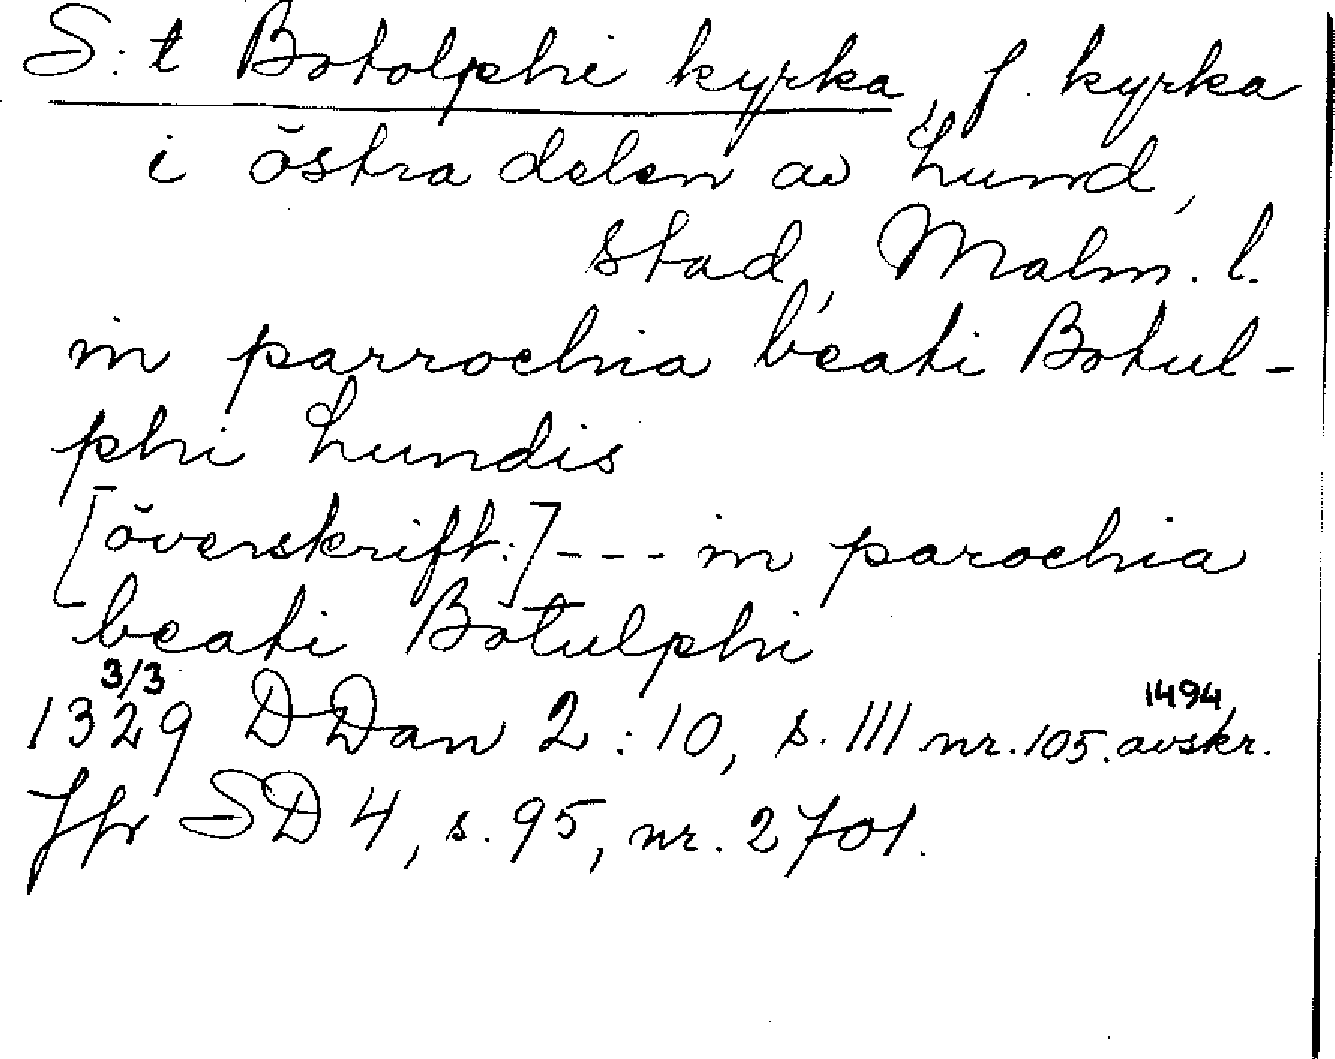 S:t Botolphi kyrka, f. kyrka
i östra delen av Lund,
stad, Malm. l.
in parrochia beati Botul-
phi Lundis
[överskrift:] --- in parochia
beati Botulphi
3/3
1329 DDan 2:10, s. 111 nr. 105. 1494 avskr.
Jfr SD 4, s. 95, nr. 2701.